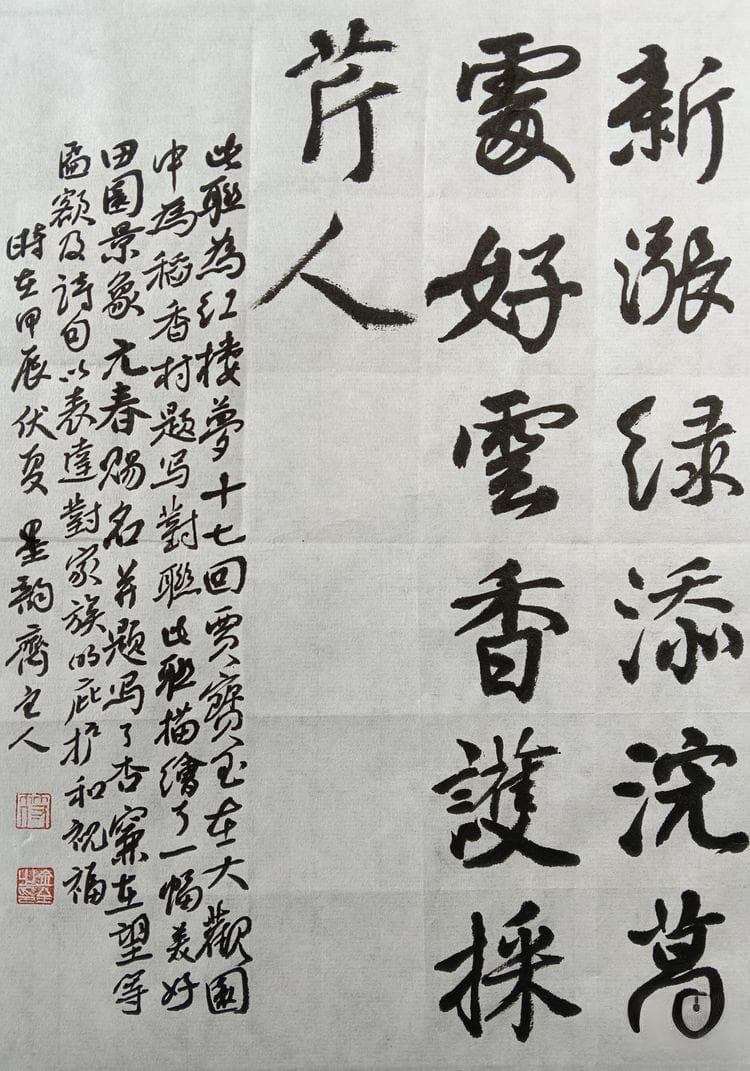 新漲绿添浣葛
處好雲香護採
芹人
此联為红楼夢十七回贾寶玉在大觀園
中為稻香村题写對聯此联描繪了一幅美好
田園景象元春赐名并题写了杏簾在望等
匾额及詩句以表達對家族的庇护和祝福
時在甲辰伏夏墨韵齋主人